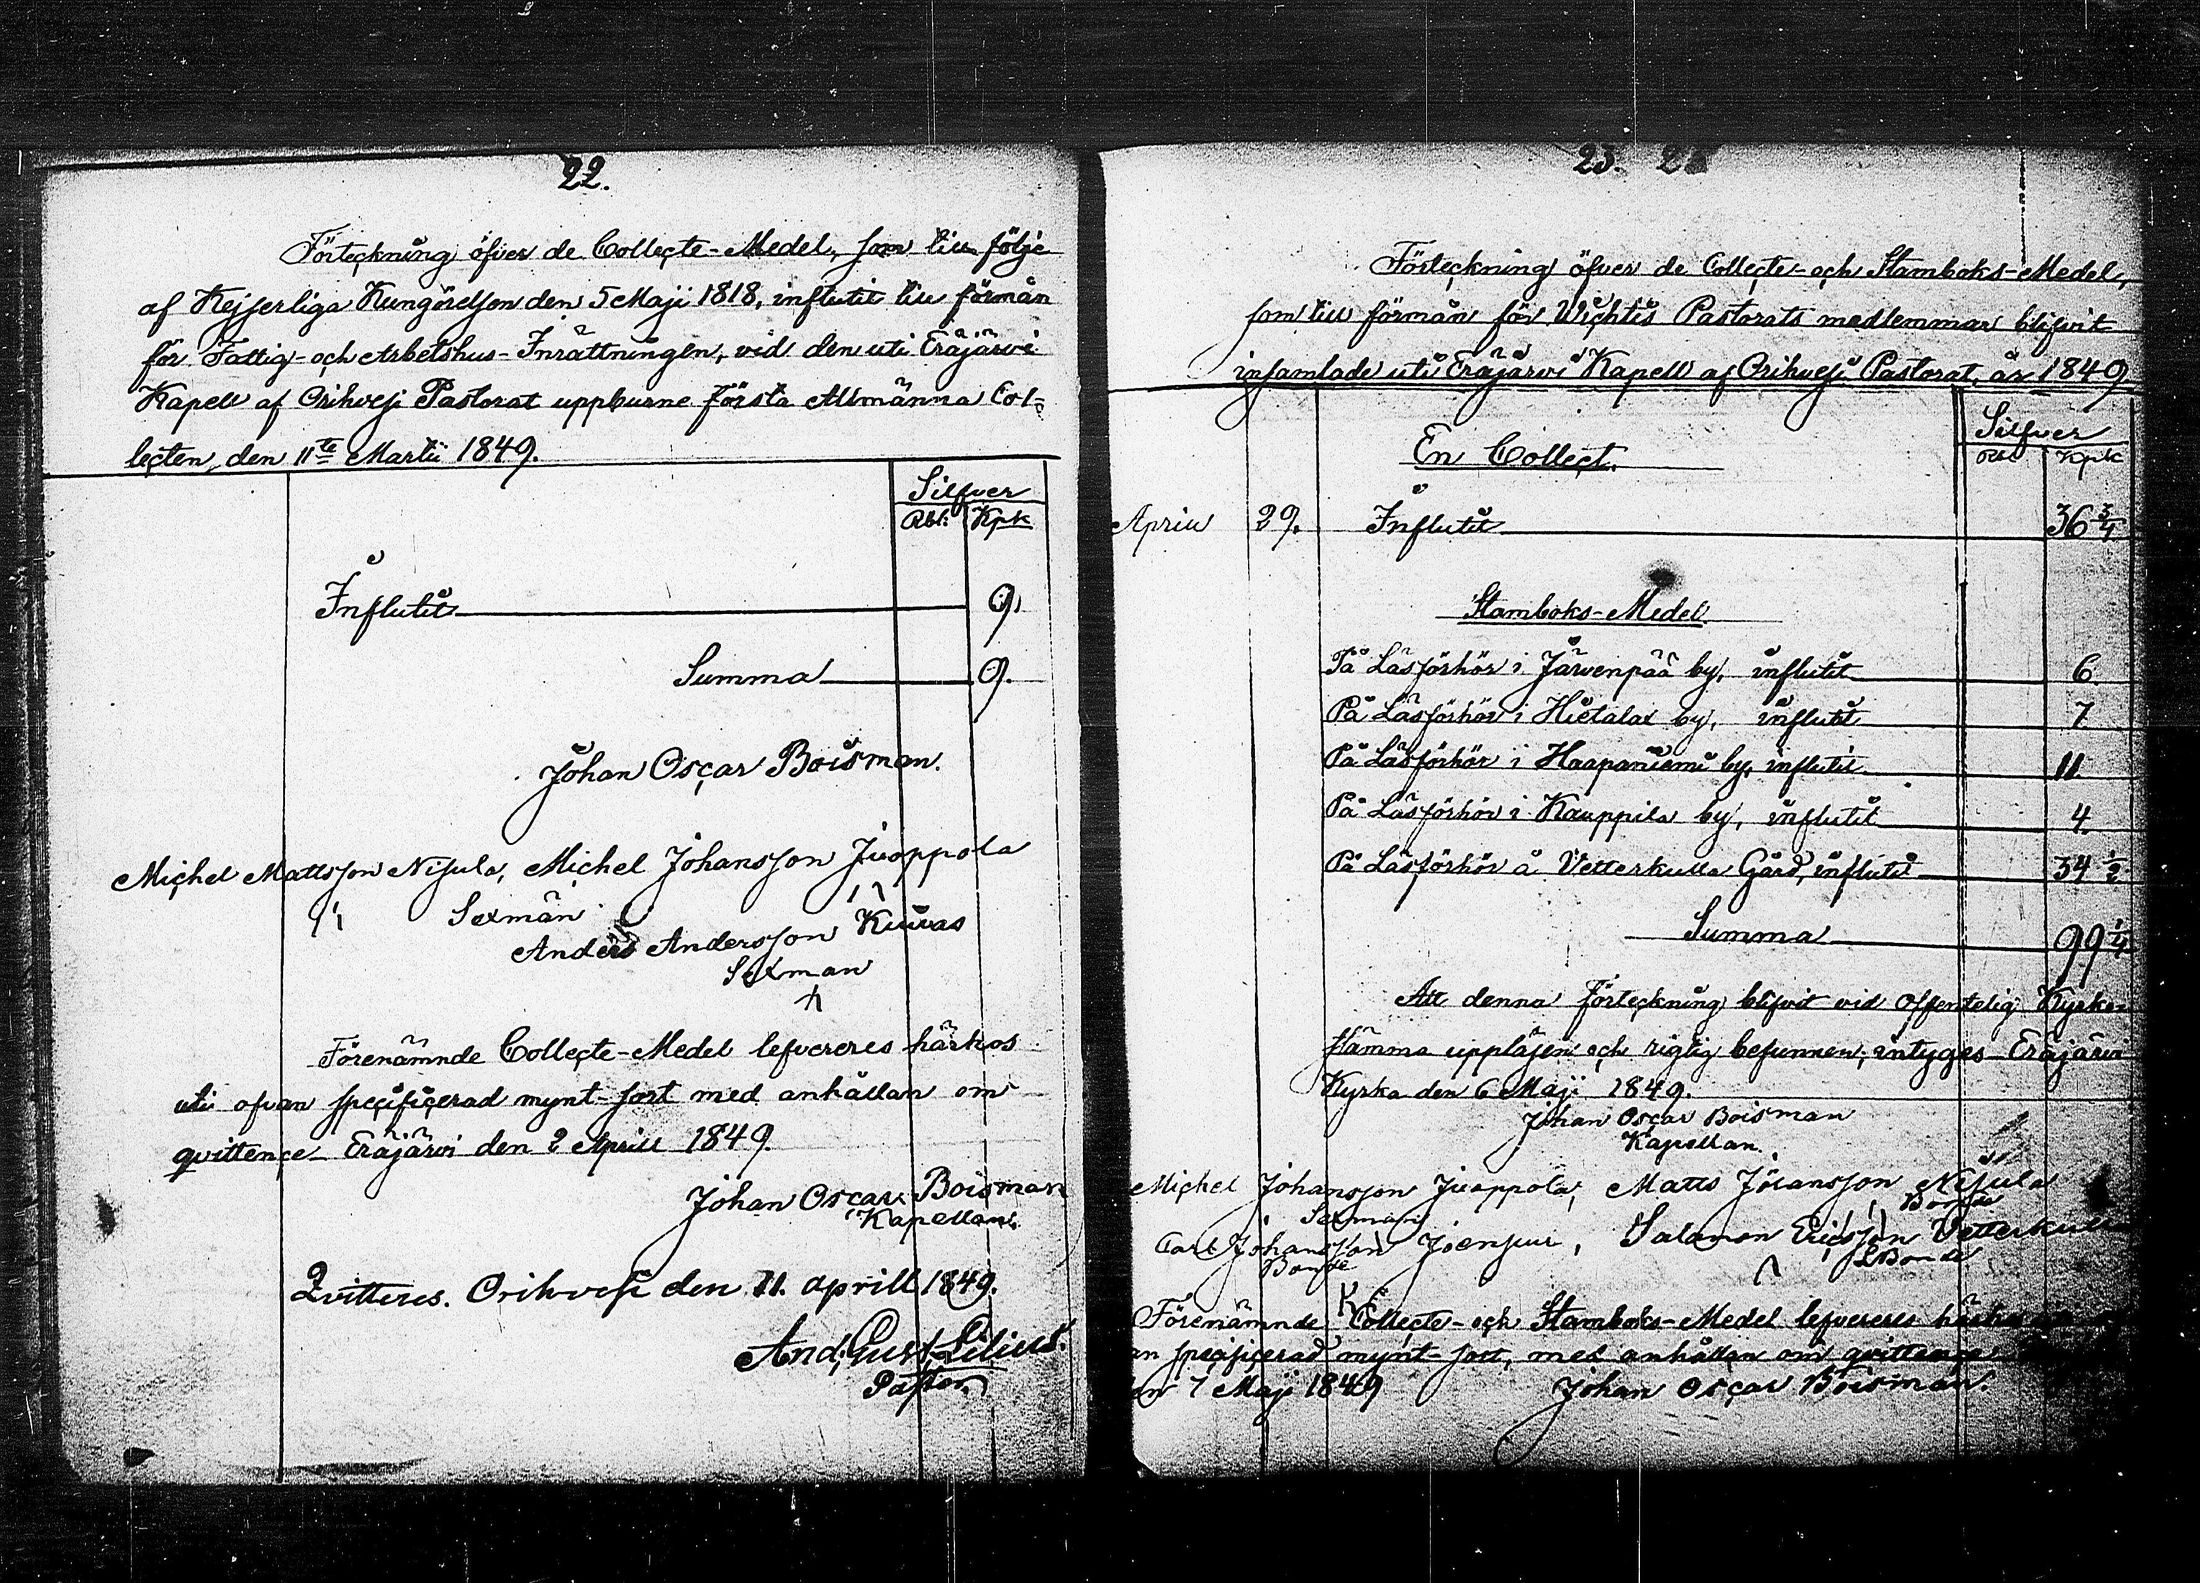 22.
Förteckning öfver de Collecte-Medel, som till följe
af Kejserliga Kungörelsen den 5 Maji 1818, influtit till förmån
för Fattig- och Arbetshus-Inrättningen, vid den uti Eräjärvi
Kapell af Orihvesi Pastorat uppburne första Allmänna Col-
lecten, den 11te Martii 1849.
Silfver
Rbl: Kpk
Influtit 9.
Summa 9.
Johan Oscar Boisman.
Michel Mattsson Nisula, Michel Johansson Juoppola
Sexmän
Anders Andersson Kuivas
Sexman
Förenämnde Collecte-Medel lefvereres härhos
uti ofvan specificerad mynt-sort med anhållan om
qvittence. Eräjärvi den 2 Aprill 1849.
Johan Oscar Boisman
Kapellan.
Qvitteres. Orihvesi den 11. aprill 1849.
And. Gust. Lilius.
Pastor.
23.
Förteckning öfver de Collecte- och Stamboks-Medel,
som till förmån för Wichtis Pastorats medlemmar blifvit
insamlade uti Eräjärvi Kapell af Orihvesi Pastorat, år 1849
Silfver
Rbl Kpk
En Collect.
Aprill 29. Influtit 36 3/4
Stamboks-Medel
På Läsförhör i Järvenpää by, influtit 6.
På Läsförhör i Hietalax by, influtit 7
På Läsförhör i Haapaniemi by, influtit 11.
På Läsförhör i Kauppila by, influtit 4.
På Läsförhör å Vetterkulla Gård, influtit 34 1/2
Summa 99 1/4
Att denna förteckning blifvit vid offentelig Kyrko-
stämma uppläsen och rigtig befunnen, intyges Eräjärvi
Kyrka den 6 Maji 1849.
Johan Oscar Boisman
Kapellan.
Michel Johansson Juoppola, Matts Jöransson Nisula
Sexman Bonde
Carl Johansson Joensuu, Salamon Ericsson Vetterkulla
Bonde Bonde
Förenämnde Collecte- och Stamboks-Medel lefvereres härhos
an specificerad mynt-sort, med anhållan om qvittence
en 7 Maji 1849 Johan Oscar Boisman.